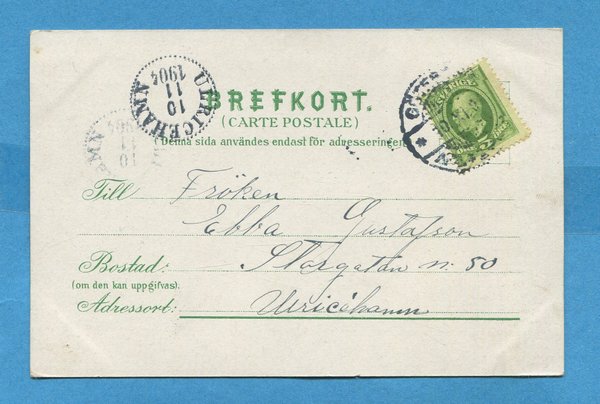 ULRICEHAMN
10
11
1904
BREFKORT.
(CARTE POSTALE)
(Denna sida användes endast för adresseringen
Till Fröken
Ebba Gustafson
Bostad: Storgatan n. 50
(om den kan uppgifvas).
Adressort: Ulricehamn